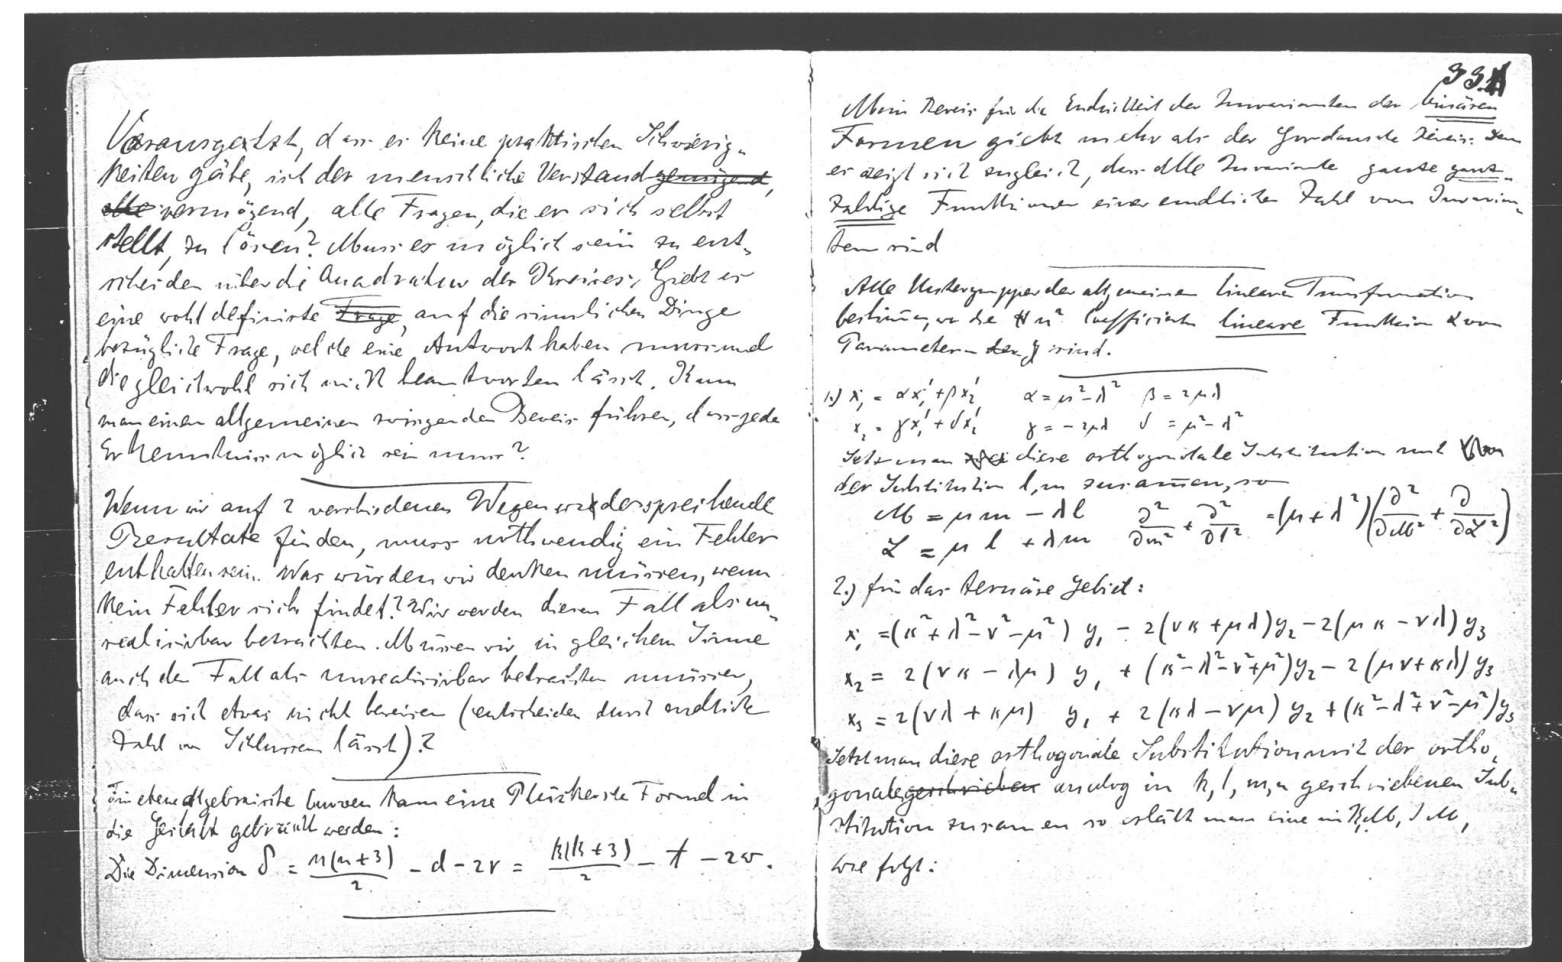 Vorausgesetzt, dass es keine praktischen Schwierig-
keiten gäbe, ist der menschliche Verstand genügend,
alle vermögend, alle Fragen, die er sich selbst
stellt, zu lösen? Muss es möglich sein zu ent-
scheiden über die Quadratur des Kreises. Giebt es
eine wohl definirte Frage, auf die sinnlichen Dinge
bezügliche Frage, welche eine Antwort haben muss und
die gleichwohl sich nicht beantworten lässt. Kann
man einen allgemeinen zwingenden Beweis führen, dass jede
Erkenntniss möglich sein muss?
Wenn wir auf 2 verschiedenen Wegen widersprechende
Resultate finden, muss nothwendig ein Fehler
enthalten sein. Was würden wir denken müssen, wenn
kein Fehler sich findet? Wir werden diesen Fall als un-
realisirbar betrachten. Müssen wir in gleichem Sinne
auch den Fall als unrealisirbar betrachten müssen,
dass sich etwas nicht beweisen (entscheiden durch endliche
Zahl von Schlüssen lässt)?
Für ebene algebraische Curven kann eine Plückersche Formel in
die Gestalt gebracht werden:
Die Dimension δ = n(n+3)/2 - d - 2r = k(k+3)/2 - t - 2w.
33
Mein Beweis für die Endlichkeit der Invarianten der binären
Formen giebt mehr als der Gordansche Beweis. Denn
es zeigt sich zugleich, dass alle Invariante ganze ganz-
zahlige Funktionen einer endlichen Zahl von Invarian-
ten sind
Alle Untergruppen der allgemeinen linearen Transformation
bestimmen, wo die n² Coefficienten lineare Funktion von
Parametern sind.
1.) x₁ = αx₁' + βx₂' α = μ² - λ² β = 2μλ
x₂ = γx₁' + δx₂' γ = -2μλ δ = μ² - λ²
Setzt man diese orthogonale Substitution mit
der Substitution l, m zusammen, so
M = μm - λl ∂²/∂m² + ∂²/∂l² = (μ + λ²)(∂²/∂M² + ∂/∂L²)
L = μl + λm
2.) für das ternäre Gebiet:
x₁ = (κ² + λ² - ν² - μ²) y₁ - 2(νκ + μλ) y₂ - 2(μκ - νλ) y₃
x₂ = 2(νκ - λμ) y₁ + (κ² - λ² - ν² + μ²) y₂ - 2(μν + κλ) y₃
x₃ = 2(νλ + κμ) y₁ + 2(κλ - νμ) y₂ + (κ² - λ² + ν² - μ²) y₃
Setzt man diese orthogonale Substitution mit der ortho-
gonale geschrieben analog in k, l, m, n geschriebenen Sub-
stitution zusammen so erhält man eine in K, M,
wie folgt: